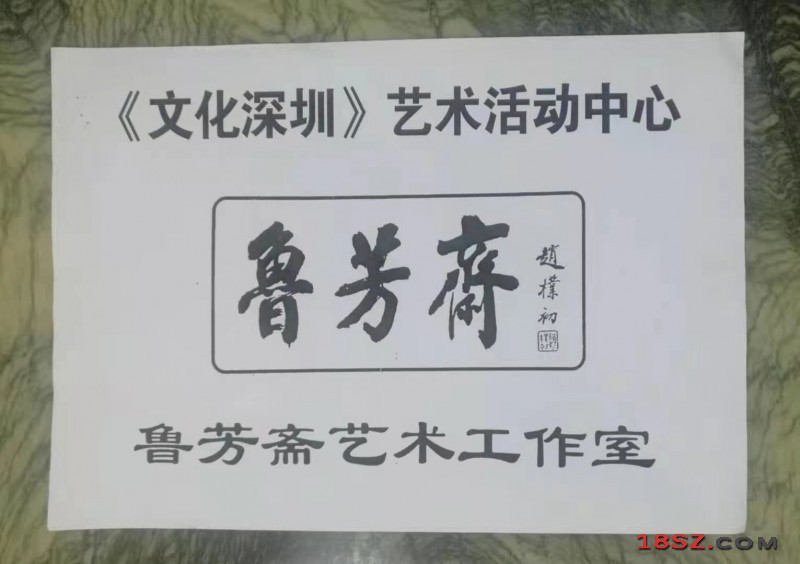 《文化深圳》艺术活动中心
魯芳齋
趙樸初
鲁芳斋艺术工作室
18SZ.COM